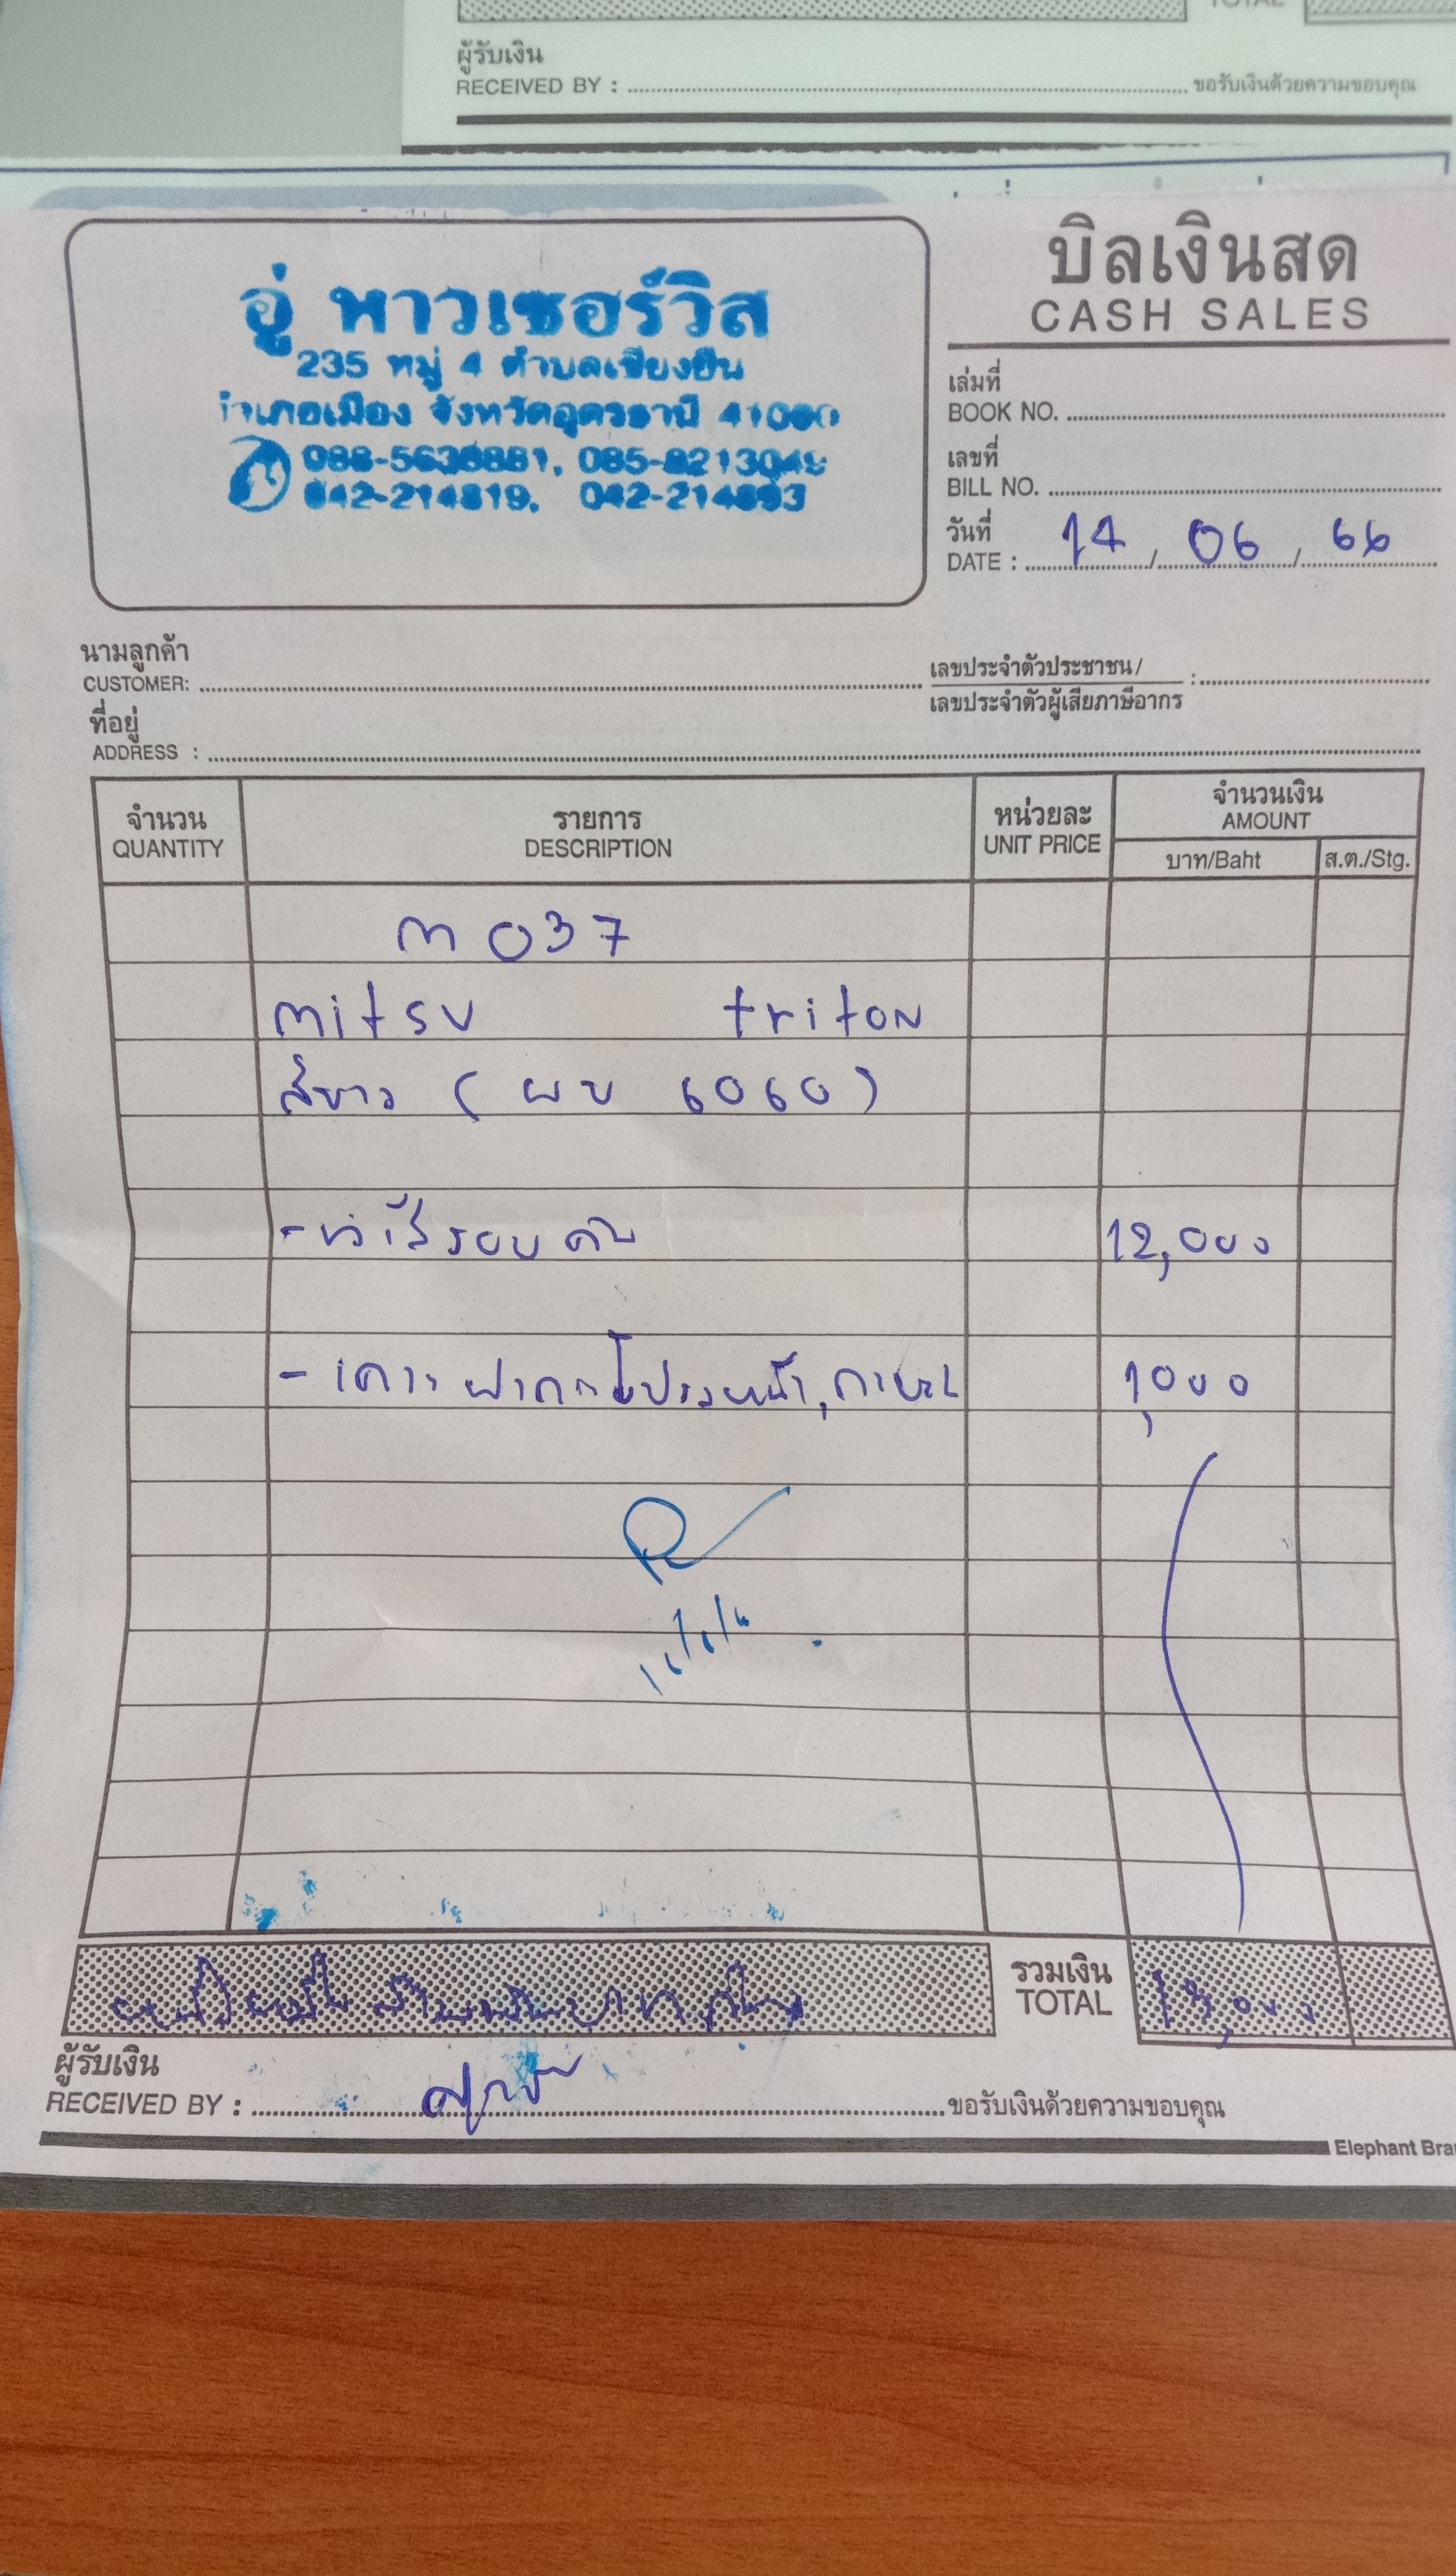 TOTAL
ผู้รับเงิน
RECEIVED BY : ขอรับเงินด้วยความขอบคุณ
อู่ พาวเซอร์วิส
235 หมู่ 4 ตำบลเชียงยืน
อำเภอเมือง จังหวัดอุดรธานี 41000
042-214819,
บิลเงินสด
CASH SALES
เล่มที่
BOOK NO.
เลขที่
BILL NO.
วันที่
DATE : 14 / 06 / 66
นามลูกค้า
CUSTOMER:
เลขประจำตัวประชาชน/
เลขประจำตัวผู้เสียภาษีอากร :
ที่อยู่
ADDRESS :
จำนวน
QUANTITY
รายการ
DESCRIPTION
หน่วยละ
UNIT PRICE
จำนวนเงิน
AMOUNT
บาท/Baht ส.ต./Stg.
m 037
mitsu triton
สีขาว ( ผบ 6060 )
รอบคัน 12,000
- เคาะฝากระโปรงหน้า, 1,000
หนึ่งหมื่นสามพันบาทถ้วน
รวมเงิน
TOTAL 13,000
ผู้รับเงิน
RECEIVED BY : ขอรับเงินด้วยความขอบคุณ
Elephant Bra